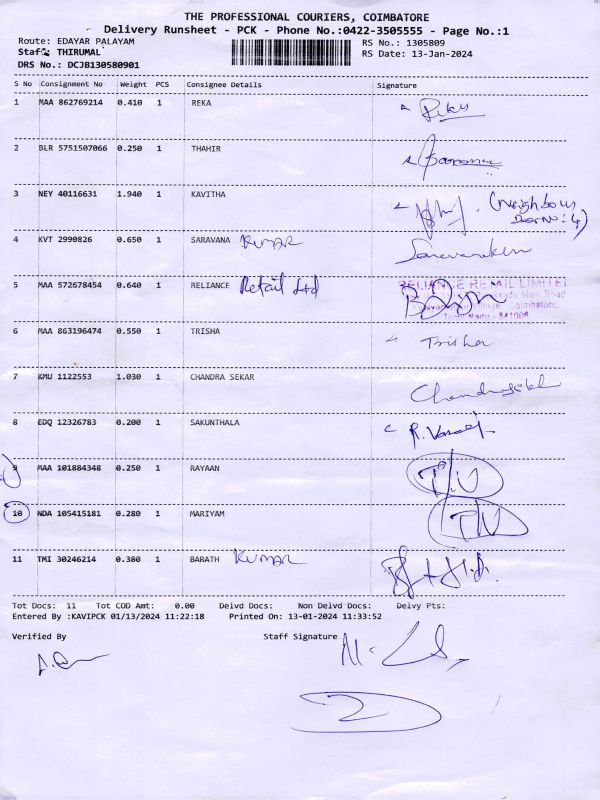 THE PROFESSIONAL COURIERS, COIMBATORE
Delivery Runsheet - PCK - Phone No.:0422-3505555 - Page No.:1
Route: EDAYAR PALAYAM
Staff: THIRUMAL
DRS No.: DCJB130580901
RS No.: 1305809
RS Date: 13-Jan-2024
S No Consignment No Weight PCS Consignee Details Signature
1 MAA 862769214 0.410 1 REKA
2 BLR 5751507066 0.250 1 THAHIR
3 NEY 40116631 1.940 1 KAVITHA (Neighbour Door No: 4)
4 KVT 2990826 0.650 1 SARAVANA Kumar
5 MAA 572678454 0.640 1 RELIANCE Retail Ltd
RELIANCE RETAIL LIMITED
Main Road
Coimbatore
Tamil Nadu - 641008
6 MAA 863196474 0.550 1 TRISHA Trisha
7 KMU 1122553 1.030 1 CHANDRA SEKAR
8 EDQ 12326783 0.200 1 SAKUNTHALA
9 MAA 101884348 0.250 1 RAYAAN
10 NDA 105415181 0.280 1 MARIYAM
11 TMI 30246214 0.380 1 BARATH Kumar
Tot Docs: 11 Tot COD Amt: 0.00 Delvd Docs: Non Delvd Docs: Delvy Pts:
Entered By :KAVIPCK 01/13/2024 11:22:18 Printed On: 13-01-2024 11:33:52
Verified By Staff Signature
2